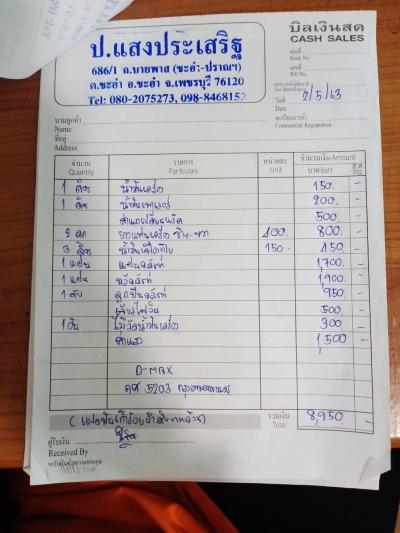 บิลเงินสด
CASH SALES
ป.แสงประเสริฐ
686/1 ถ.บายพาส (ชะอำ-ปราณฯ)
ต.ชะอำ อ.ชะอำ จ.เพชรบุรี 76120
Tel: 080-2075273, 098-8468152
เล่มที่
Book No.
เลขที่
Bill No.
วันที่ 2/5/63
Date
ทะเบียนการค้า
Commercial Registration
นามลูกค้า
Name
ที่อยู่
Address
จำนวน รายการ หน่วยละ จำนวนเงิน Amount
Quantity Particulars Unit บาท Baht
1 ลิตร น้ำมันเครื่อง 150 -
1 ลิตร 200 -
500 -
2 ลูก ยางแท่นเครื่อง ซ้าย-ขวา 400 800 -
3 ลิตร 150 450 -
1 แผ่น แผ่นคลัตช์ 1,700 -
1 แผ่น หวีคลัตช์ 1,900 -
1 ตับ ลูกปืนคลัตช์ 950 -
500 -
1 อัน ไม้วัดน้ำมันเครื่อง 300 -
ค่าแรง 1,500 -
D-MAX
5203 กรุงเทพมหานคร
รวมเงิน 8,950 -
Total
ผู้รับเงิน
Received By